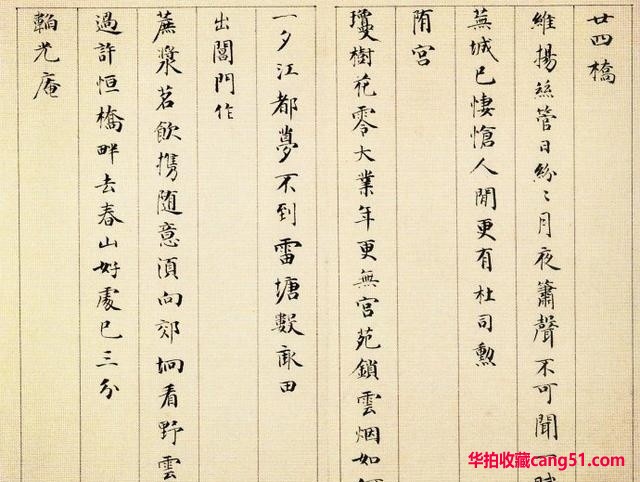 廿四橋
維揚絲管日紛〻月夜簫聲不可聞一賦
蕪城已悽愴人閒更有杜司勳
隋宮
瓊樹花零大業年更無宮苑鎖雲烟如何
一夕江都夢不到雷塘數畝田
出閶門作
蔗漿茗飲携隨意須向郊坰看野雲
過許恒橋畔去春山好處已三分
韜光庵
华拍收藏cang51.com